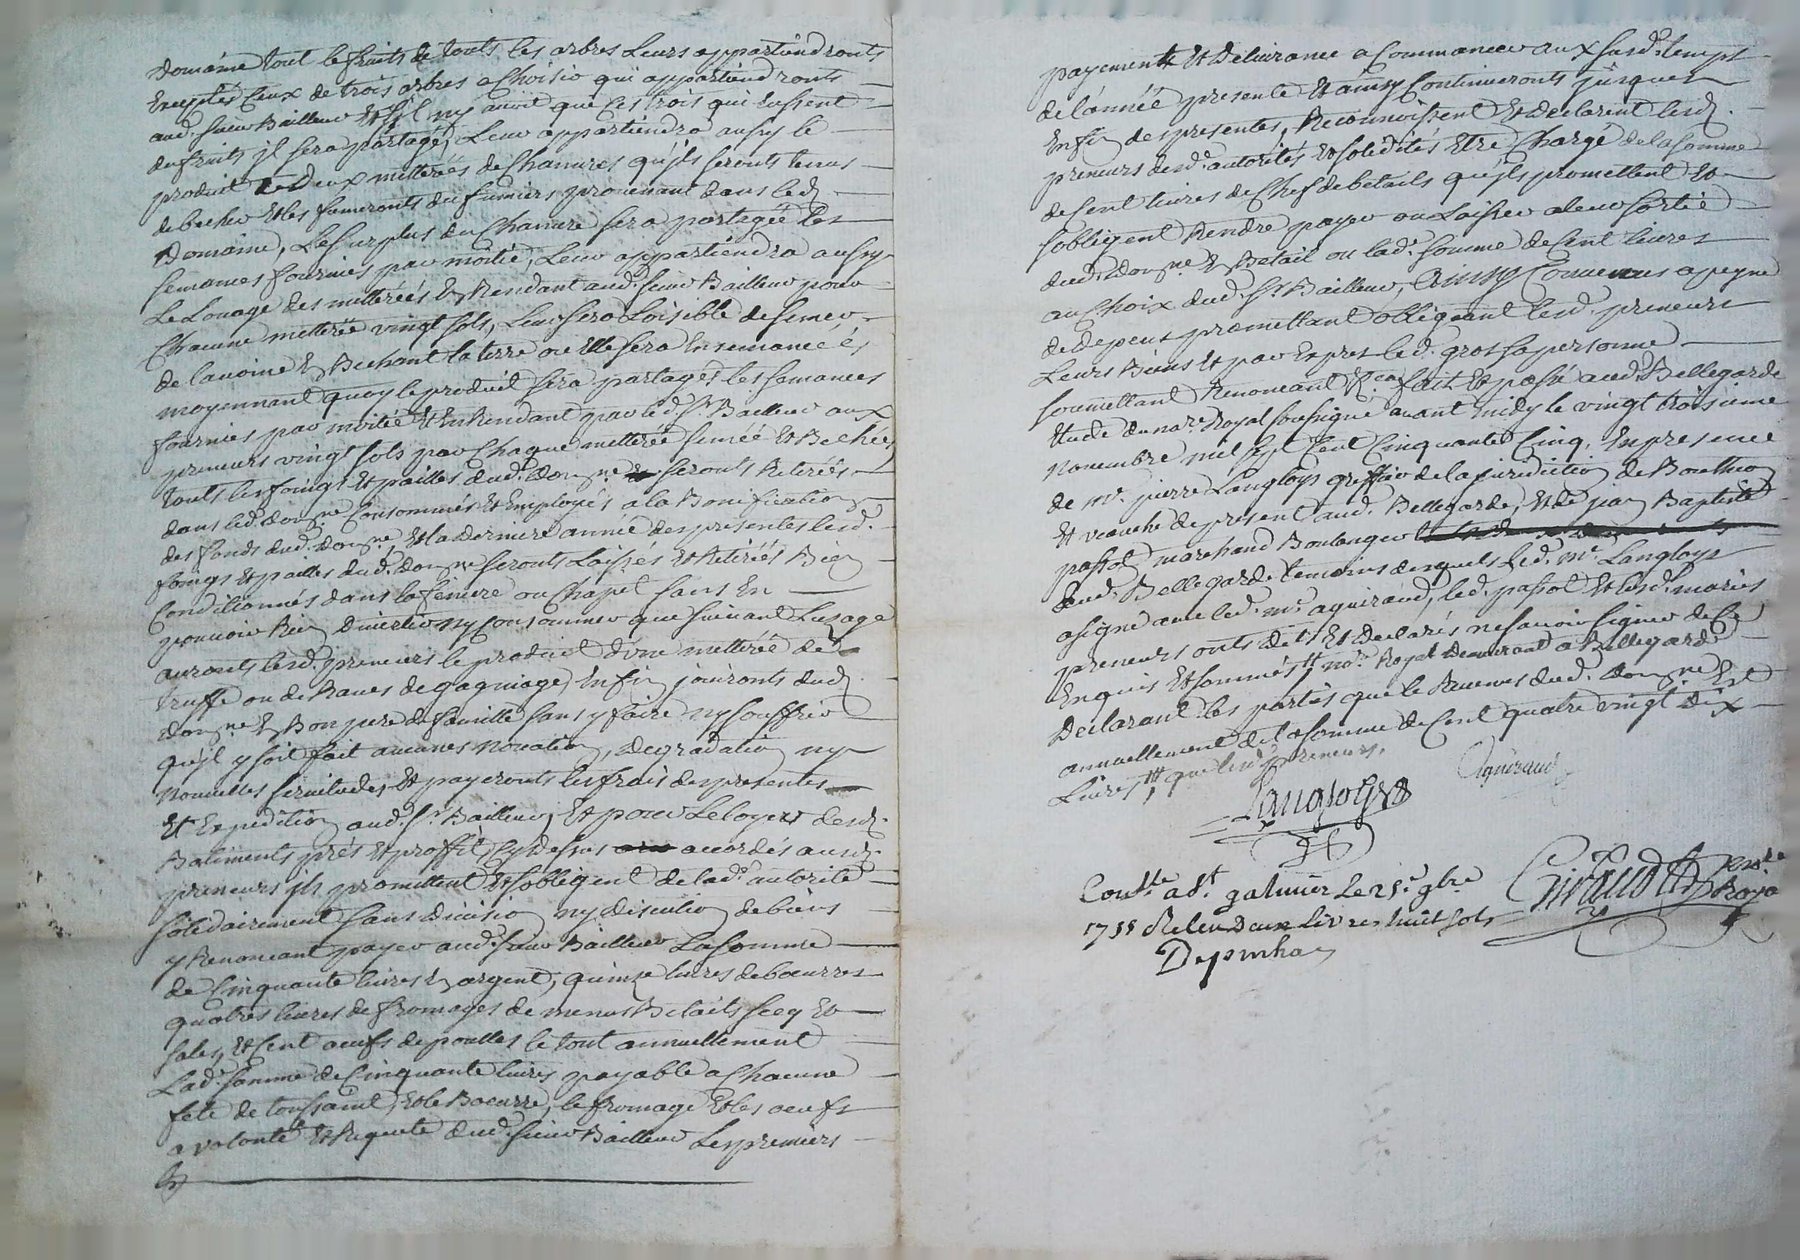 Domaine tout le fruits de touts les arbres Leurs appartiendronts
Exceptés Ceux de trois arbres a Choisir qui appartiendronts
aud. sieur Bailleur Et s'il ny avoit que Ces trois qui Eussent
du fruits jl sera partagé, Leur appartiendra aussy le
produit de Deux metterées de Chanvres qu'jls seronts tenus
de becher Et les fumeronts du fumiers provenant dans led.
Domaine, Le surplus du Chanvre sera partagée les
semances fournies par moitié, Leur appartiendra aussy
Le Louage des metterées En Rendant aud. sieur Bailleur pour
Chacune metterée vingt sols, Leur sera Loisible de semer
de lavoine En Bechant la terre ou Elle sera Ensemancée és
moyennant quoy le produit sera partagé, les semances
fournies par moitié Et En Rendant par led. sr. Bailleur aux
preneurs vingt sols par Chaque metterée semée Et Bechée,
touts les foings Et pailles dud. Domne. seronts Retirées
dans led. Domne. Consommés Et Employés a la Bonification
des fonds dud. Domne, Et la derniere année des presentes lesd.
foings Et pailles dud. Domne seronts Laissés Et Retirées Bien
Conditionnés dans la feniere ou Chapit sans En
pouvoir Rien Divertir ny Consommer que suivant Lusage
auronts lesd. preneurs le produit d'une metterée de
truffe ou de Raves de gagniage, Enfin joüironts dud.
Domne. En Bon pere de famille sans y faire ny souffrir
qu'jl y soit fait aucunes novation, Degradation ny
nouvelles servitudes, Et payeronts les frais des presentes
Et Expedition aud. sr. Bailleur, Et pour Le Loyer desd.
Batiments prés Et proffit, Cy Dessus accordés auxd.
preneurs jls promettent Et s'obligent de lad. autorité
solidairement sans Division ny Discution de biens
y Renoncant payer aud. sieur Bailleur La somme
de Cinquante livres En argent, quinze livres de bœurres
quatres livres de fromages de menus Betails secq Et
salés, Et Cent œufs de poulles le tout annuellement
Lad. somme de Cinquante livres payable a Chacune
fete de toussaint, Et le Bœurre, le fromage Et les œufs
a volonté Et Requete dud. sieur Bailleur Les premiers
payements Et Delivrance a Commancer aux susd. temps
de l'année presente Et ainsy Continueronts jusques
Enfin des presentes, Reconnoissent Et Declarent lesd.
preneurs desd. autorités Et solidités Etre Chargé de la somme
de Cent livres de Chef de betails qu'jls promettent Et
s'obligent Rendre payer ou Laisser a leur sortie
dud. Domne. En Betail ou lad. somme de Cent livres
au Choix dud. sr. Bailleur, Ainsy Convenus a peyne
de depens promettant obligeant lesd. preneurs
Leurs Biens Et par Expres led. gros sa personne
soumettant Renoncant Etca. fait Et passé aud. Bellegarde
Etude du nore. Royal soussigné avant midy le vingt troisieme
novembre mil sept Cent Cinquante Cinq. En presence
de me. pierre Langloys greffier de la jurediction de Bouthéon
Et veauche de present aud. Bellegarde, Et de jean Baptiste
passot marchand Boulanger
dud. Bellegarde temoins desquels led. me. Langloys
a signé avec led. me. aguiraud, led. passot Et lesd. mariés
preneurs onts Dit Et Declarés ne savoir signer de Ce
Enquis Et sommés, nore. Royal Demeurant a Bellegarde
Declarant les parties que le Revenus dud. Domne. Est
annuellement de la somme de Cent quatre vingt Dix
Livres, que lesd. preneurs.
Aguiraud
Langloys
Contlle. a st. galmier le 25e. 9bre
1755 Releu Deux livres huit sols
Giraud nore Roya